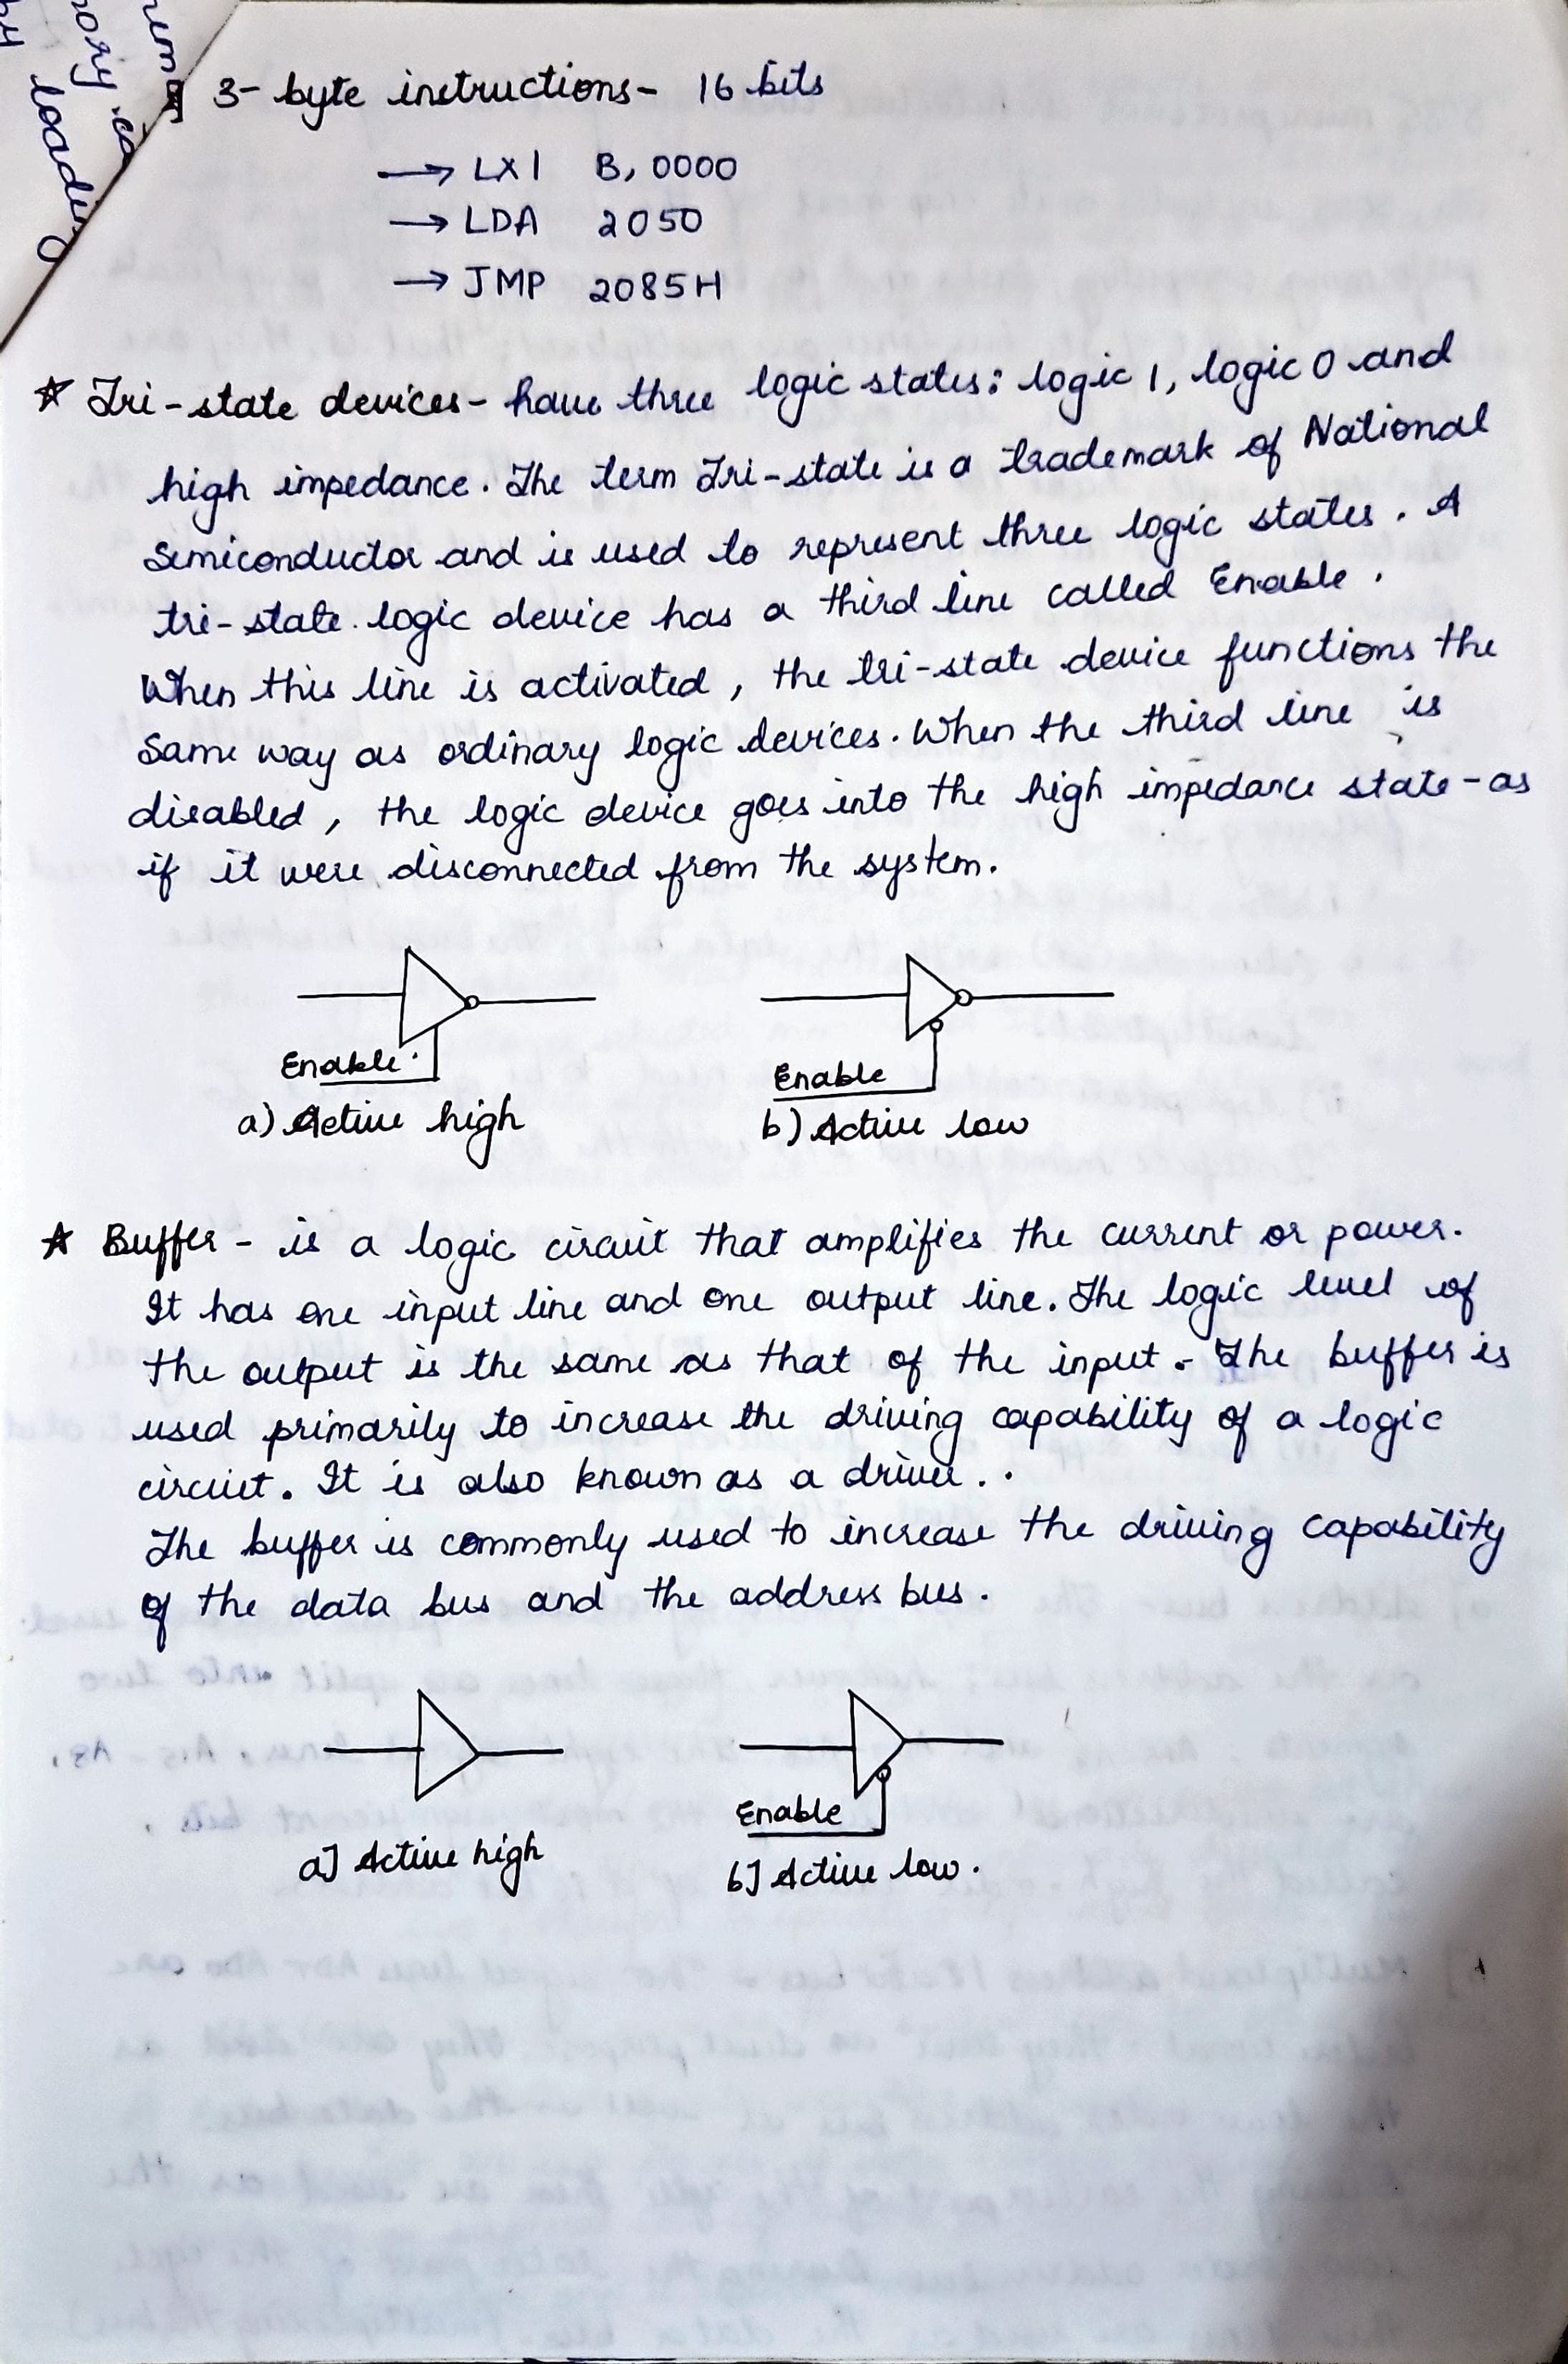 3- byte instructions- 16 bits
→ LXI B, 0000
→ LDA 2050
→ JMP 2085H
☆ Tri-state devices- have three logic states: logic 1, logic 0 and
high impedance. The term Tri-state is a trademark of National
Semiconductor and is used to represent three logic states. A
tri-state logic device has a third line called Enable.
When this line is activated, the tri-state device functions the
same way as ordinary logic devices. When the third line is
disabled, the logic device goes into the high impedance state-as
if it were disconnected from the system.
Enable Enable
a) Active high b) Active low
☆ Buffer - is a logic circuit that amplifies the current or power.
It has one input line and one output line. The logic level of
the output is the same as that of the input. The buffer is
used primarily to increase the driving capability of a logic
circuit. It is also known as a driver..
The buffer is commonly used to increase the driving capability
of the data bus and the address bus.
Enable
a] Active high b] Active low.